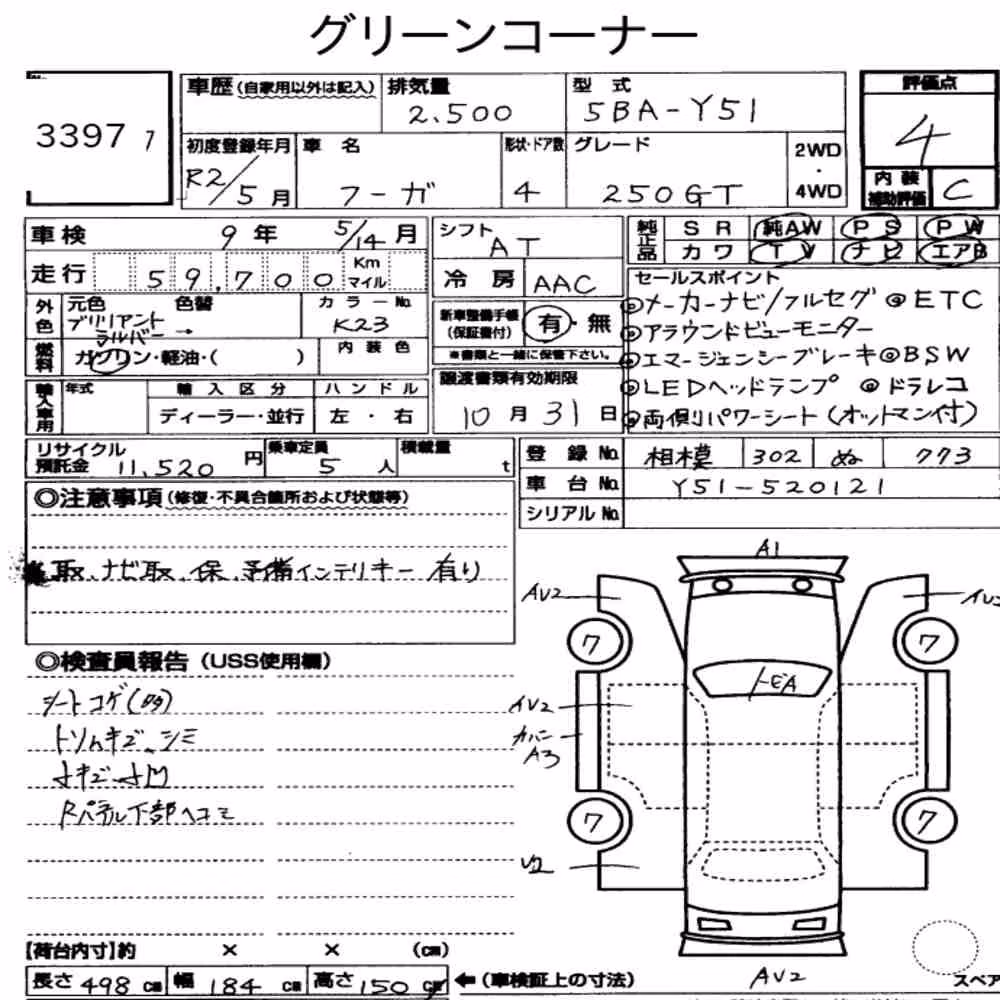 グリーンコーナー
No.
3397 7
車歴 (自家用以外は記入) 排気量 2.500 型式 5BA-Y51
初度登録年月 R2/5月 車名 フーガ 形状・ドア数 4 グレード 250GT 2WD・4WD
評価点 4
内装補助評価 C
車検 9年 5/14月
走行 59,700 Km マイル
外色 元色 ブリリアントシルバー 色替 → カラーNo. K23
燃料 ガソリン・軽油・( ) 内装色
輸入車用 年式 輸入区分 ハンドル
ディーラー・並行 左・右
シフト AT
冷房 AAC
新車整備手帳(保証書付) 有・無
※書類と一緒に保管下さい。
譲渡書類有効期限
10月31日
純正品 SR 純AW PS PW
カワ TV ナビ エアB
セールスポイント
◎メーカーナビ/フルセグ ◎ETC
◎アラウンドビューモニター
◎エマージェンシーブレーキ◎BSW
◎LEDヘッドランプ ◎ドラレコ
◎両側パワーシート(オットマン付)
リサイクル預託金 11,520円 乗車定員 5人 積載量 t
登録No. 相模 302 ぬ 773
車台No. Y51-520121
シリアルNo.
◎注意事項(修復・不具合箇所および状態等)
取、ナビ取、保、予備インテリキー有り
◎検査員報告(USS使用欄)
シートコゲ(多)
トリムキズ、シミ
小キズ、小凹
Rパネル下部ヘコミ
A1
AV2
7 7
トビA
AV2
カバー
A3
7 7
U2
AV2
スペア
【荷台内寸】約 × × (cm)
長さ 498 cm 幅 184 cm 高さ 150 cm ←(車検証上の寸法)